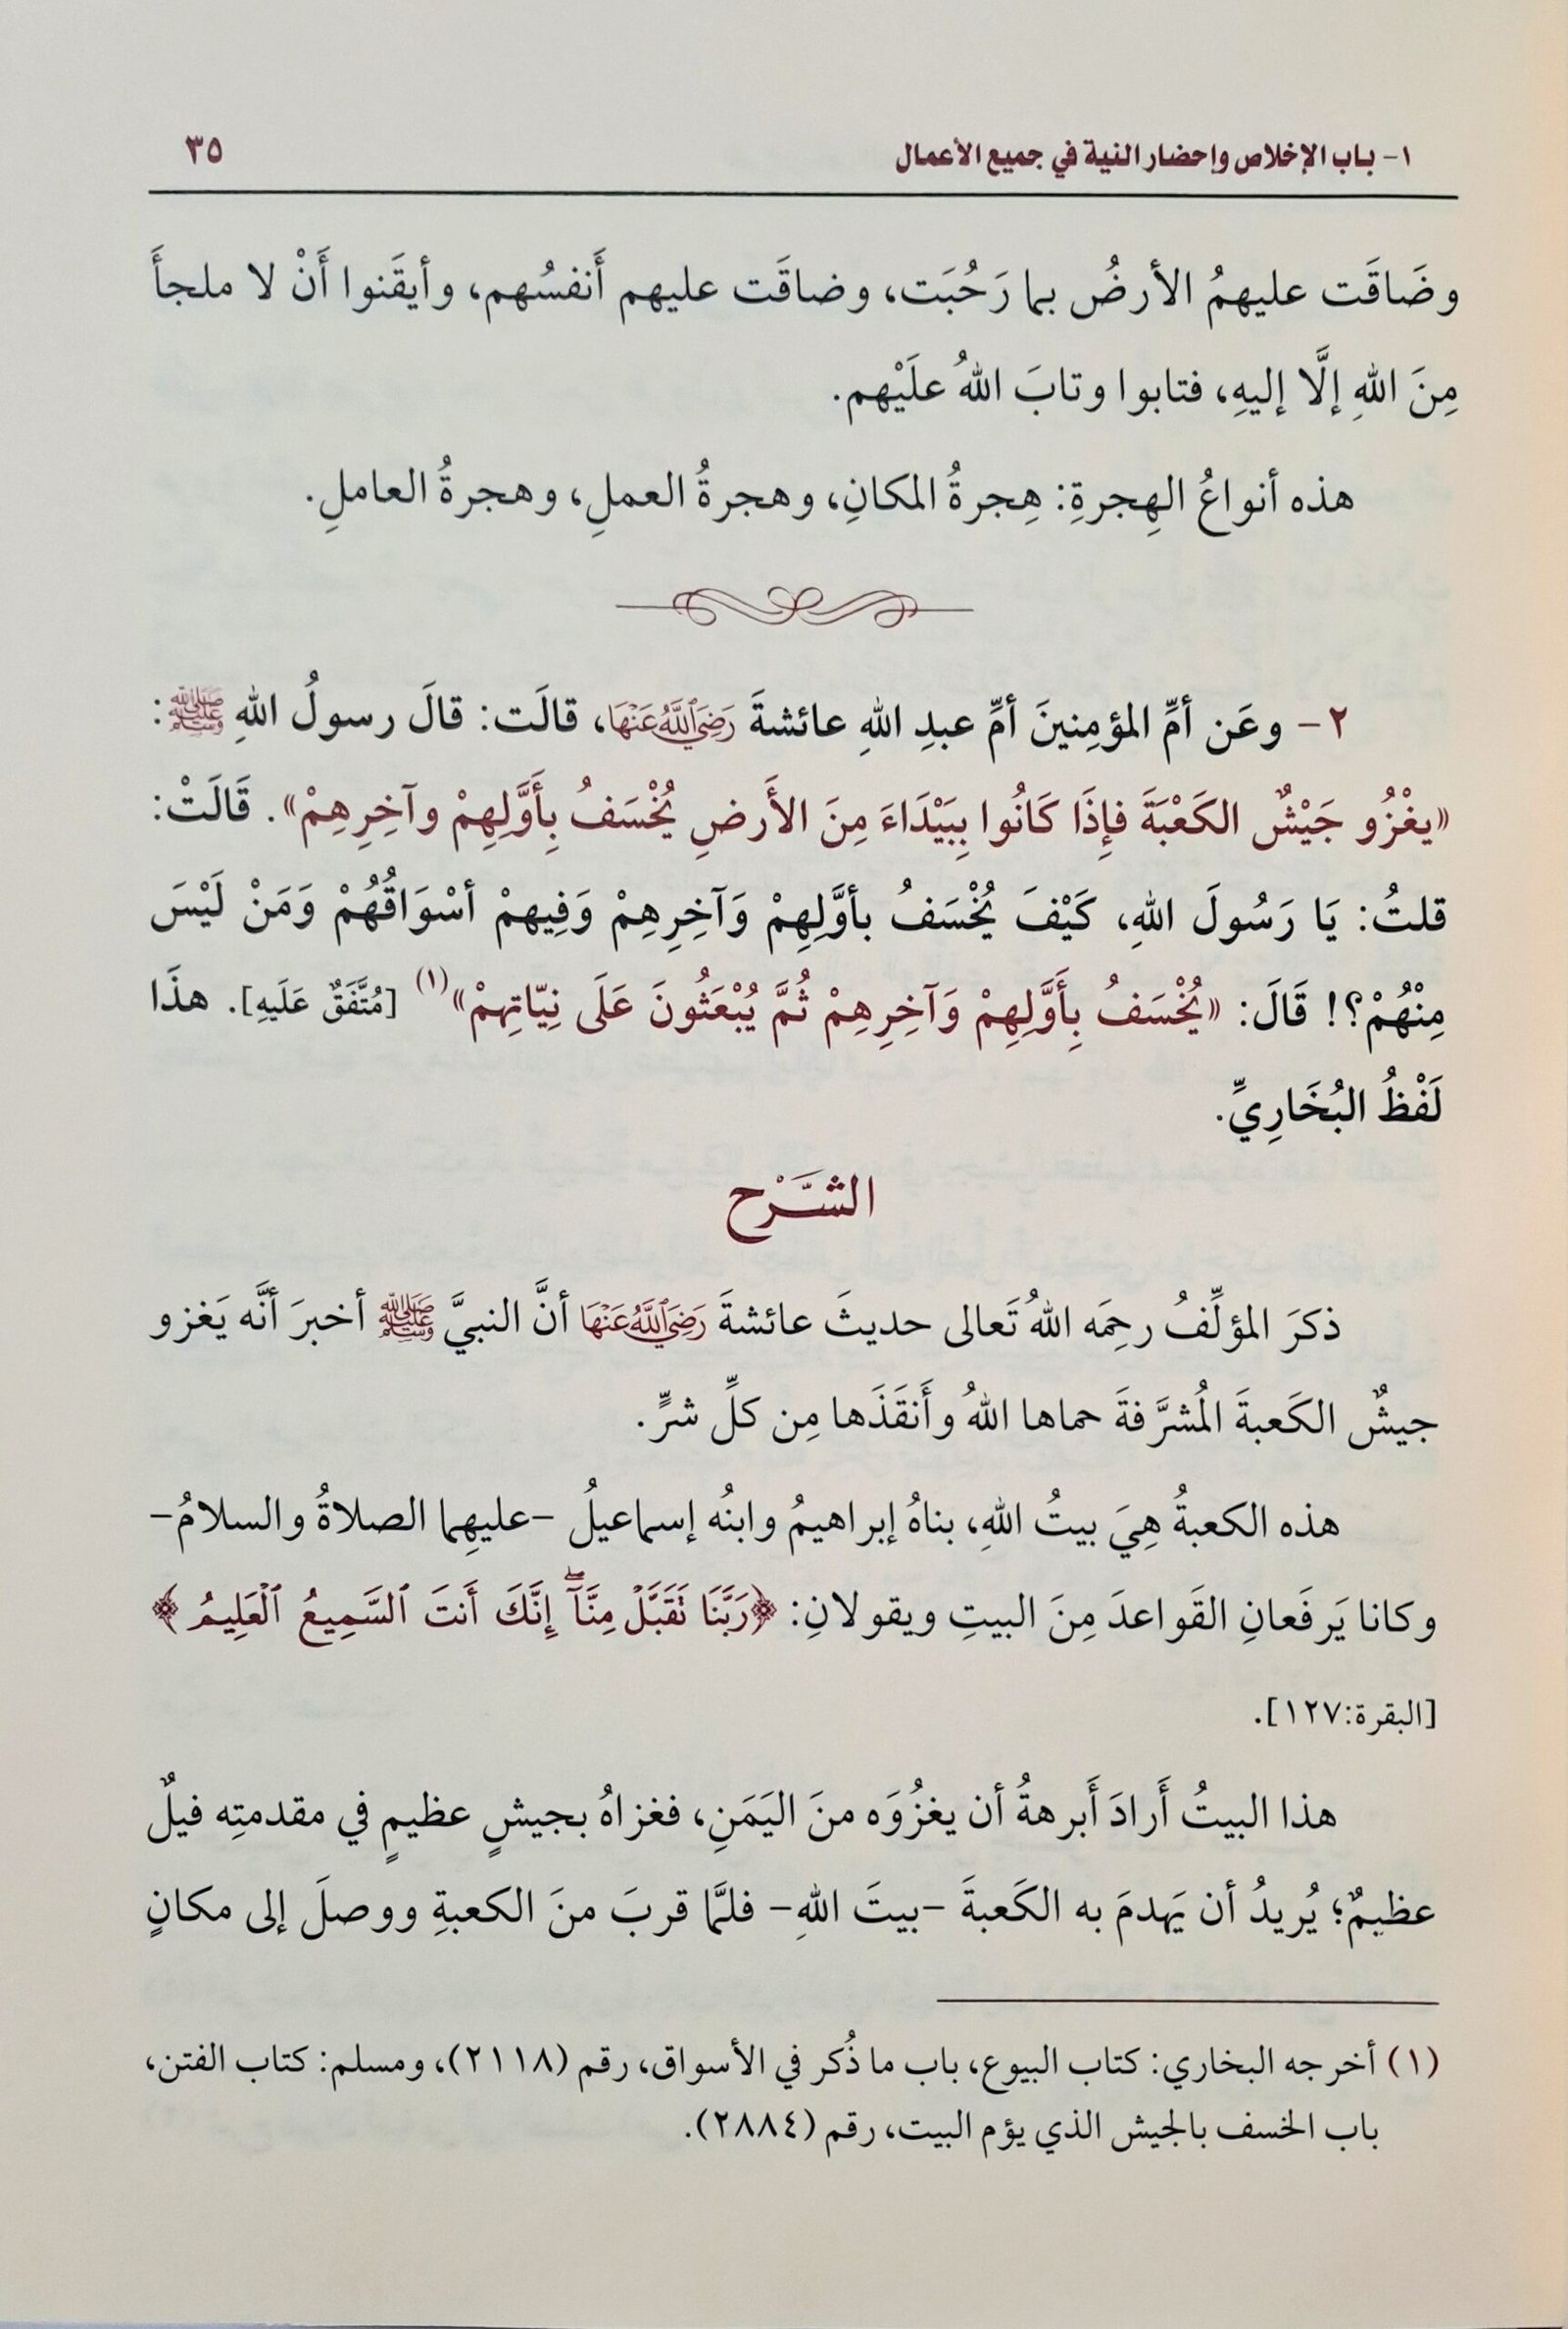 ١- باب الإخلاص وإحضار النية في جميع الأعمال ٣٥
وضَاقَت عليهمُ الأرضُ بما رَحُبَت، وضاقَت عليهم أَنفسُهم، وأيقَنوا أَنْ لا ملجأَ
مِنَ اللهِ إلَّا إليهِ، فتابوا وتابَ اللهُ علَيْهم.
هذه أنواعُ الهِجرةِ: هِجرةُ المكانِ، وهجرةُ العملِ، وهجرةُ العاملِ.
٢- وعَن أمِّ المؤمِنينَ أمِّ عبدِ اللهِ عائشةَ رَضِيَ اللَّهُ عَنْهَا، قالَت: قالَ رسولُ اللهِ ﷺ:
«يغْزُو جَيْشٌ الكَعْبَةَ فإِذَا كَانُوا بِبَيْدَاءَ مِنَ الأَرضِ يُخْسَفُ بِأَوَّلِهِمْ وآخِرِهِمْ». قَالَتْ:
قلتُ: يَا رَسُولَ اللهِ، كَيْفَ يُخْسَفُ بأوَّلِهِمْ وَآخِرِهِمْ وَفِيهمْ أسْوَاقُهُمْ وَمَنْ لَيْسَ
مِنْهُمْ؟! قَالَ: «يُخْسَفُ بِأَوَّلِهِمْ وَآخِرِهِمْ ثُمَّ يُبْعَثُونَ عَلَى نِيّاتِهمْ»(١) [مُتَّفَقٌ عَلَيهِ]. هذَا
لَفْظُ البُخَارِيِّ.
الشَّرْح
ذكرَ المؤلِّفُ رحِمَه اللهُ تَعالى حديثَ عائشةَ رَضِيَ اللَّهُ عَنْهَا أنَّ النبيَّ ﷺ أخبرَ أنَّه يَغزو
جيشٌ الكَعبةَ المُشرَّفةَ حماها اللهُ وأَنقَذَها مِن كلِّ شرٍّ.
هذه الكعبةُ هِيَ بيتُ اللهِ، بناهُ إبراهيمُ وابنُه إسماعيلُ -عليهِما الصلاةُ والسلامُ-
وكانا يَرفَعانِ القَواعدَ مِنَ البيتِ ويقولانِ: ﴿رَبَّنَا تَقَبَّلْ مِنَّآ إِنَّكَ أَنتَ ٱلسَّمِيعُ ٱلْعَلِيمُ﴾
[البقرة:١٢٧].
هذا البيتُ أَرادَ أَبرهةُ أن يغزُوَه منَ اليَمَنِ، فغزاهُ بجيشٍ عظيمٍ في مقدمتِه فيلٌ
عظيمٌ؛ يُريدُ أن يَهدمَ به الكَعبةَ -بيتَ اللهِ- فلمَّا قربَ منَ الكعبةِ ووصلَ إلى مكانٍ
(١) أخرجه البخاري: كتاب البيوع، باب ما ذُكر في الأسواق، رقم (٢١١٨)، ومسلم: كتاب الفتن،
باب الخسف بالجيش الذي يؤم البيت، رقم (٢٨٨٤).